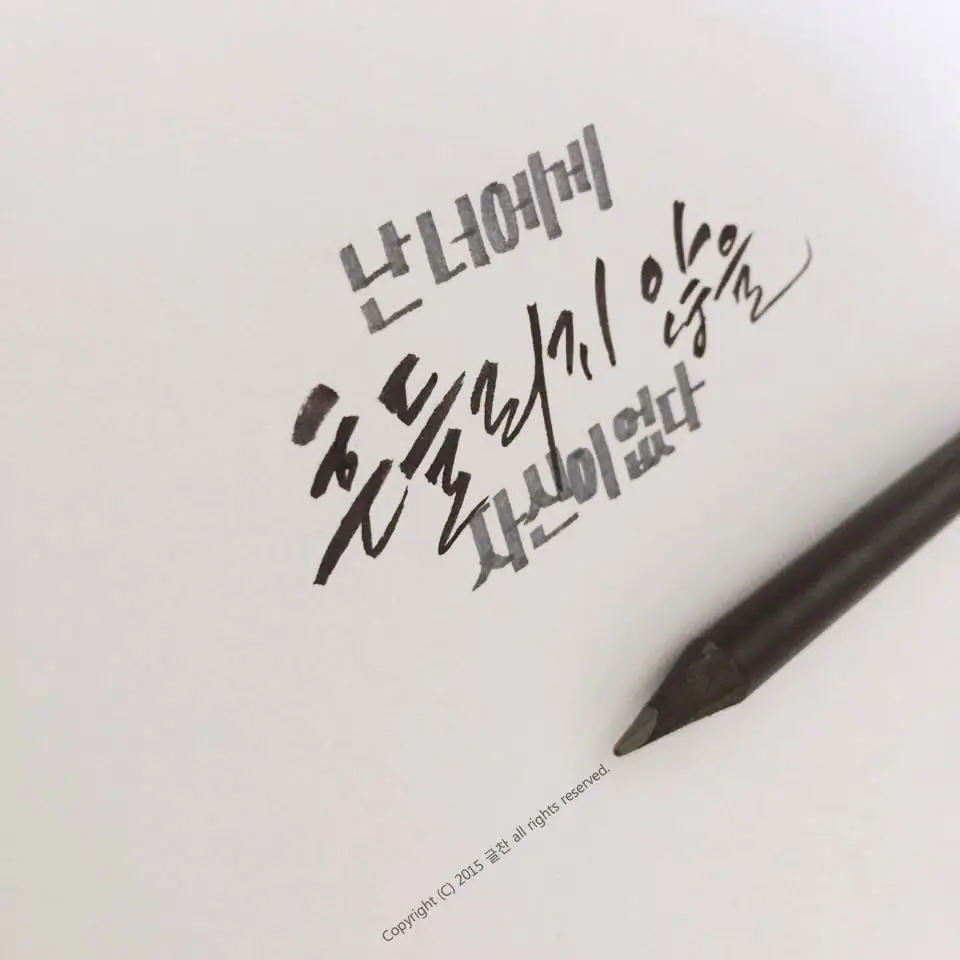 난 너에게
흔들리지 않을
자신이 없다
Copyright (C) 2015 글찬 all rights reserved.